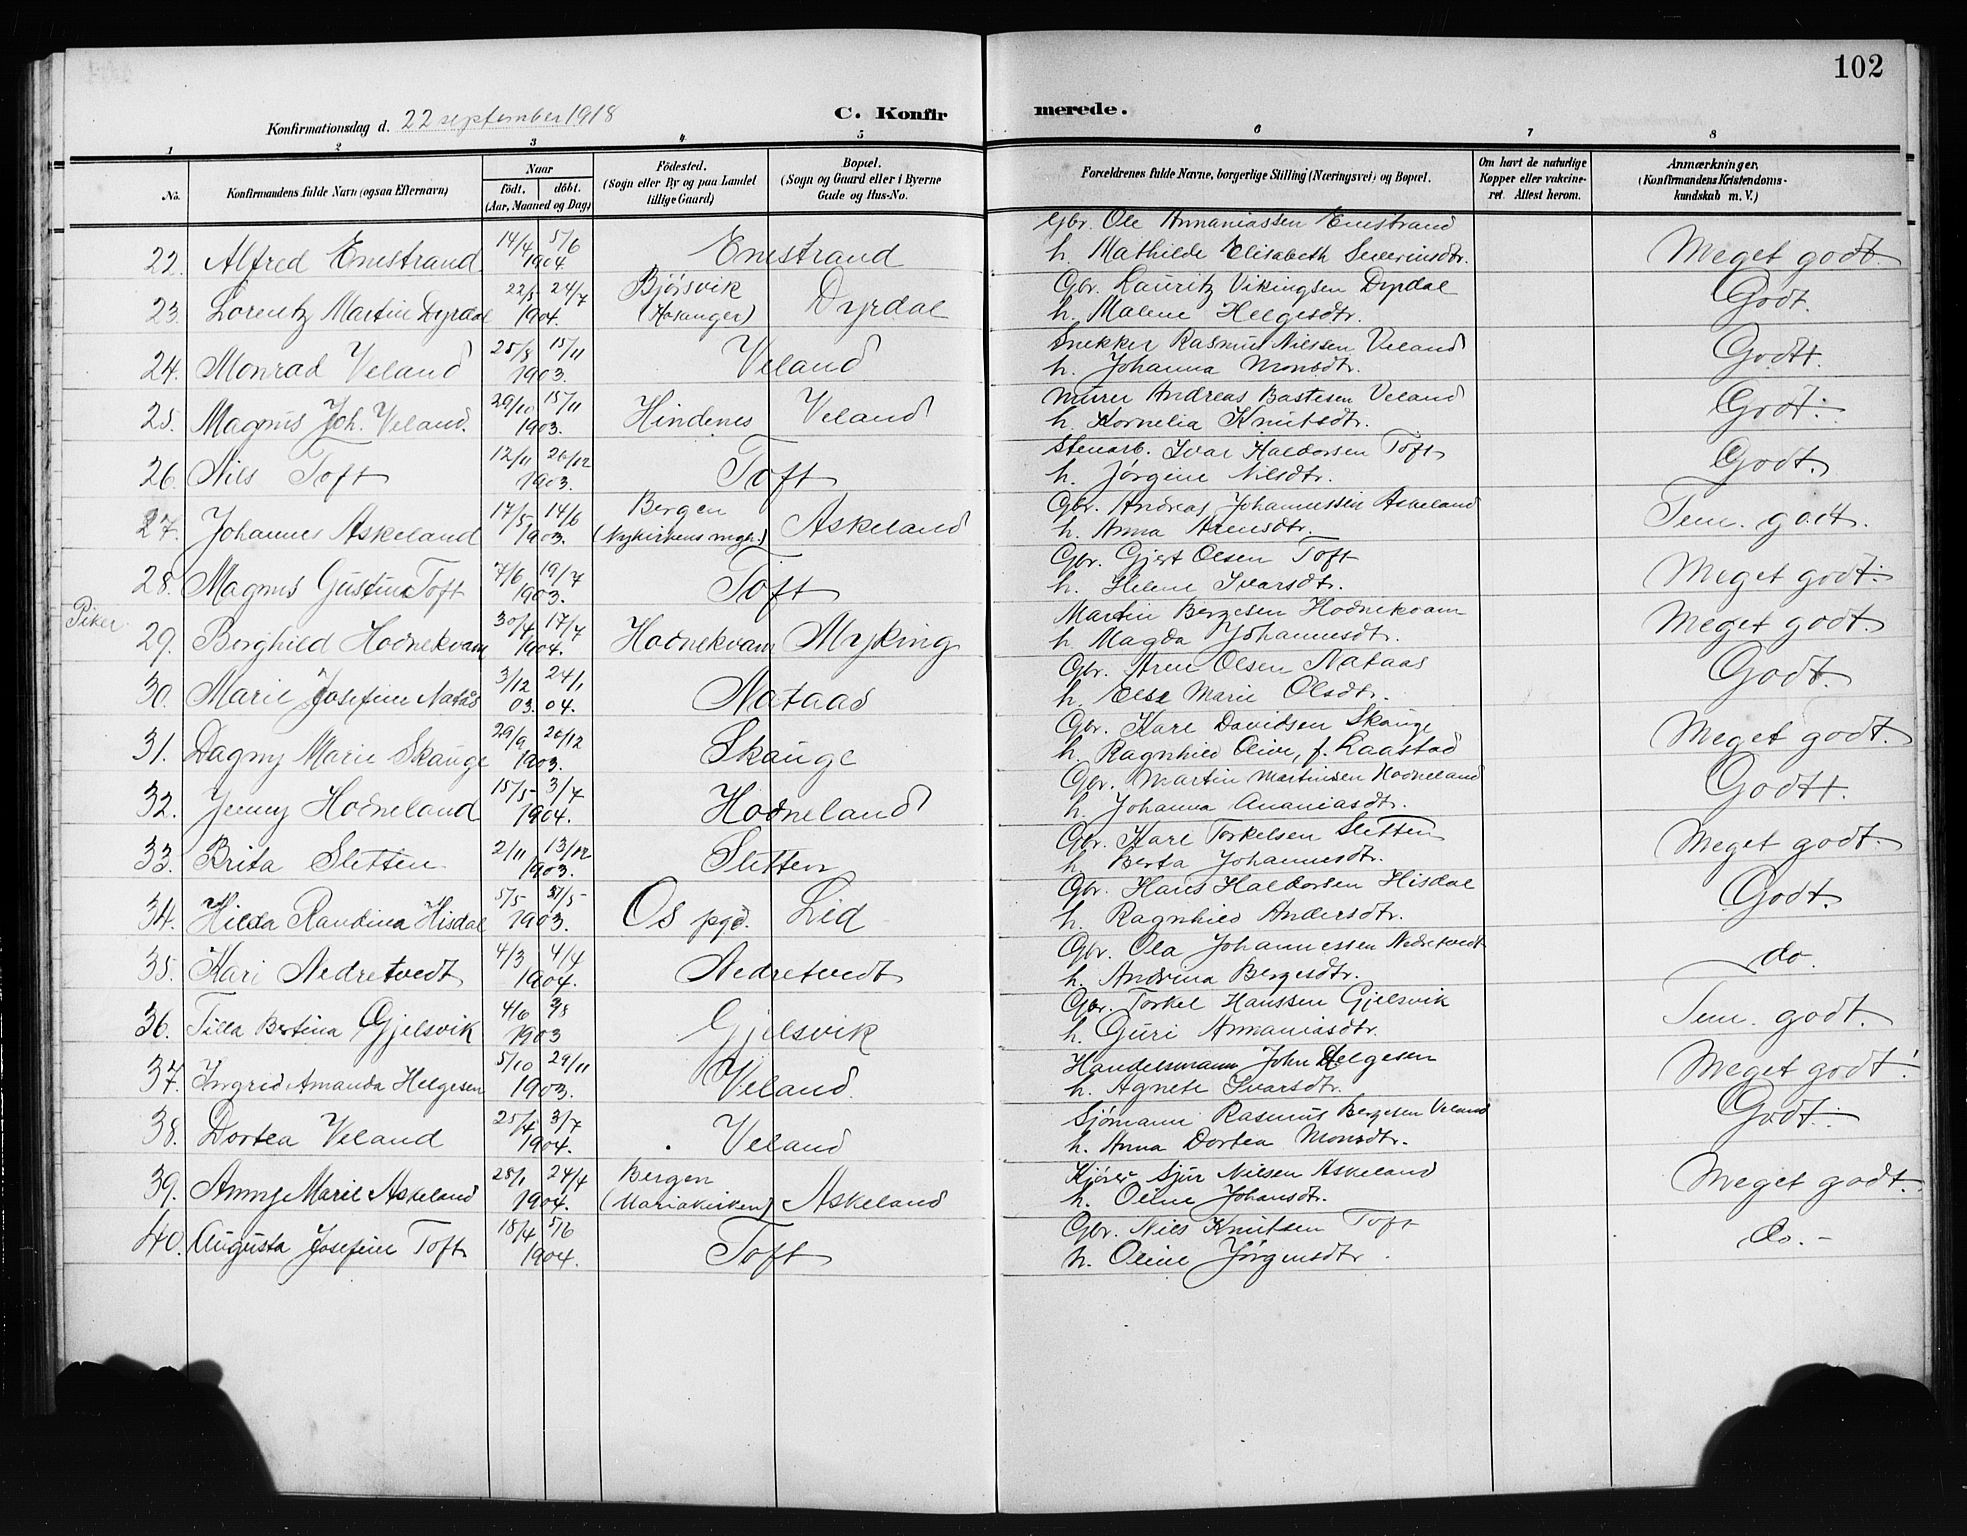 102
Konfirmationsdag d. 22 september 1918
C. Konfir merede.
1 2 3 4 5 6 7 8
No.
Konfirmandens fulde Navn (ogsaa Efternavn)
Naar
født. døbt.
(Aar, Maaned og Dag)
Fødested.
(Sogn eller By og paa Landet
tillige Gaard)
Bopæl.
(Sogn og Gaard eller i Byerne
Gade og Hus-No.
Forældrenes fulde Navne, borgerlige Stilling (Næringsvei) og Bopæl.
Om havt de naturlige
Kopper eller vakcine-
ret. Attest herom.
Anmærkninger,
(Konfirmandens Kristendoms-
kundskab m. V.)
22. Alfred Emstrand 14/4 5/6 1904 Emstrand Gbr. Ole Annaniassen Emstrand
h. Mathilde Elisabeth Severinsdtr. Meget godt.
23. Lorentz Martin Dyrdal 22/5 24/7 1904. Bjørsvik (Hosanger) Dyrdal Gbr. Lauritz Vikingsen Dyrdal
h. Malene Helgesdtr. Godt.
24. Monrad Veland 25/8 15/11 1903. Veland Snekker Rasmus Nilssen Veland
h. Johanna Monsdtr. Godt.
25. Magnus Joh. Veland. 29/10 15/11 1903. Hindenes Veland Murer Andreas Bastesen Veland
h. Kornelia Knutsdtr. Godt.
26. Nils Toft 12/11 26/12 1903. Toft Stenarb. Ivar Haldorsen Toft
h. Jørgine Nilsdtr. Godt.
27. Johannes Askeland 17/5 14/6 1903. Bergen (Nykirkens mgh.) Askeland Gbr. Andreas Johannessen Askeland
h. Anna Arensdtr. Tem. godt.
28. Magnus Gustinu Toft 7/6 19/7 1903. Toft Gbr. Gjert Olsen Toft
h. Helene Ivarsdtr. Meget godt.
Piker
29. Borghild Hodnekvam 30/4 17/7 1904. Hodnekvam Myking Martin Bergesen Hodnekvam
h. Magda Johannesdtr. Meget godt.
30. Marie Josefine Nataas 3/12 03. 24/1 04. Nataas Gbr. Aren Olsen Nataas
h. Else Marie Olsdtr. Godt.
31. Dagny Marie Skauge 29/9 26/12 1903. Skauge Gbr. Karl Davidsen Skauge
h. Ragnhild Oline, f. Laastad Meget godt.
32. Jenny Hodneland 15/5 3/7 1904. Hodneland Gbr. Martin Martinsen Hodneland
h. Johanna Ananiasdtr. Godt.
33. Brita Sletten 2/11 13/12 1903. Sletten Gbr. Karl Torkelsen Sletten
h. Berta Johannesdtr. Meget godt.
34. Hilda Randina Hisdal 5/5 31/5 1903. Os pgd. Lid Gbr. Hans Haldorsen Hisdal
h. Ragnhild Andersdtr. Godt.
35. Kari Nedretvedt 4/3 4/4 1904. Nedretvedt Gbr. Ola Johannessen Nedretvedt
h. Andrina Bergesdtr. do.
36. Tilla Bertina Gjelsvik 4/6 1903 Gjelsvik Gbr. Torkel Hanssen Gjelsvik
h. Guri Annaniasdtr. Tem. godt.
37. Ingrid Amanda Helgesen 5/10 29/11 1903. Veland. Handelsmann John Helgesen
h. Agnete Ivarsdtr. Meget godt.
38. Dortea Veland 25/4 3/7 1904. Veland Sjømann Rasmus Bergesen Veland
h. Anna Dortea Monsdtr. Godt.
39. Anny Marie Askeland 28/1 24/4 1904. Bergen (Mariakirken) Askeland Kjører Sjur Nilsen Askeland
h. Oline Johansdtr. Meget godt.
40. Augusta Josefine Toft 18/4 5/6 1904. Toft Gbr. Nils Knutsen Toft
h. Oline Jørgensdtr. do. -